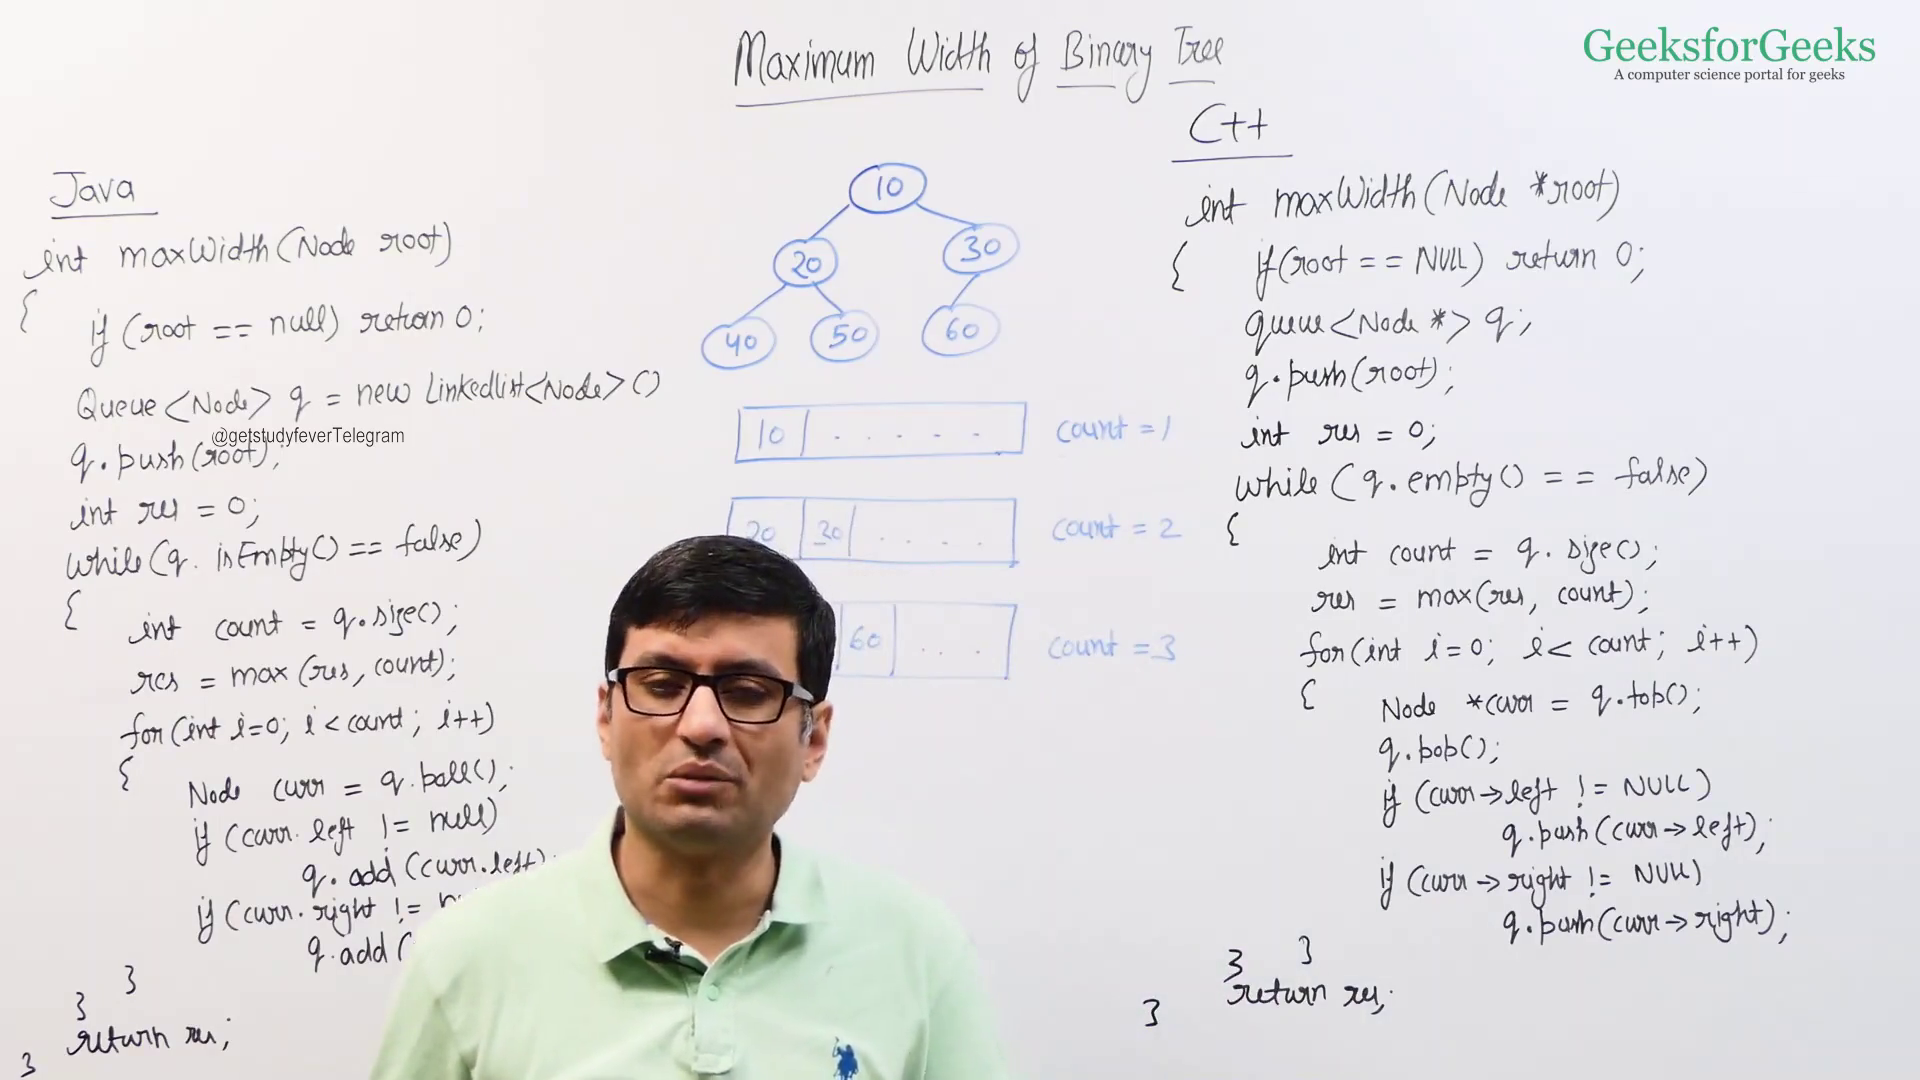 Maximum Width of Binary Tree
GeeksforGeeks
A computer science portal for geeks
Java
int maxWidth(Node root)
{
if (root == null) return 0;
Queue<Node> q = new LinkedList<Node>()
@getstudyfeverTelegram
q.push(root);
int res = 0;
while(q. isEmpty() == false)
{
int count = q.size();
res = max (res, count);
for(int i=0; i < count; i++)
{
Node curr = q.poll();
if (curr. left != null)
q. add (curr.left);
if (curr. right !=
q.add (
}
}
return res;
}
10
20
30
40
50
60
10 . . . . .
count = 1
20 30 . . . .
count = 2
60 . . .
count = 3
C++
int maxWidth(Node *root)
{ if(root == NULL) return 0;
queue<Node *> q;
q.push(root);
int res = 0;
while (q.empty() == false)
{
int count = q.size();
res = max(res, count);
for(int i=0; i< count; i++)
{
Node *curr = q.top();
q.pop();
if (curr->left != NULL)
q.push(curr->left);
if (curr->right != NULL)
q.push(curr->right);
}
}
return res;
}